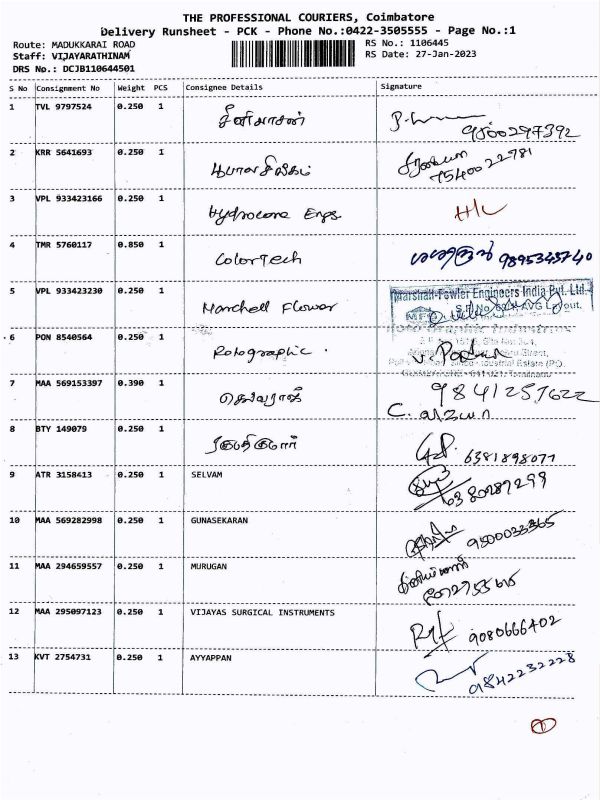 THE PROFESSIONAL COURIERS, Coimbatore
Delivery Runsheet - PCK - Phone No.:0422-3505555 - Page No.:1
Route: MADUKKARAI ROAD RS No.: 1106445
Staff: VIJAYARATHINAM RS Date: 27-Jan-2023
DRS No.: DCJB110644501
S No Consignment No Weight PCS Consignee Details Signature
1 TVL 9797524 0.250 1 சீனிவாசன்
9500297392
2 KRR 5641693 0.250 1
7540022781
3 VPL 933423166 0.250 1 Hydrocare Engs H/c
4 TMR 5760117 0.850 1 ColorTech 9895345740
5 VPL 933423230 0.250 1 Marchell Flower Marshall-Fowler Engineers India Pvt. Ltd.
6 PON 8540564 0.250 1 Rotographic
7 MAA 569153397 0.390 1 செல்வராஜ் 9841257622
C. விஜயா
8 BTY 149079 0.250 1 6381898077
9 ATR 3158413 0.250 1 SELVAM
10 MAA 569282998 0.250 1 GUNASEKARAN 9500033365
11 MAA 294659557 0.250 1 MURUGAN
12 MAA 295097123 0.250 1 VIJAYAS SURGICAL INSTRUMENTS 9080666402
13 KVT 2754731 0.250 1 AYYAPPAN 9842232228